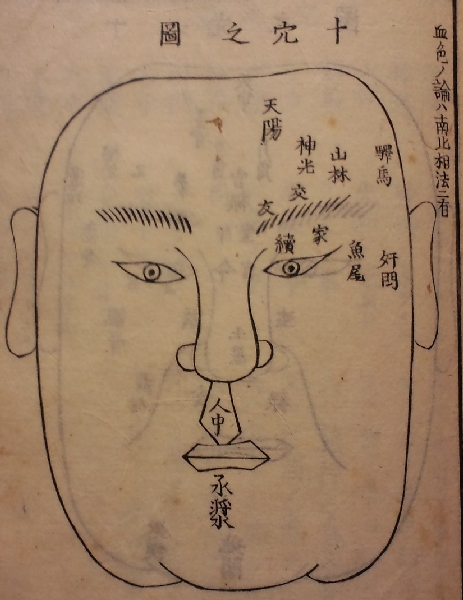 血色ノ論ハ南北相法ニ有
十穴之圖
驛馬
山林
神光
天陽
交友
家續
魚尾
奸門
人中
承漿